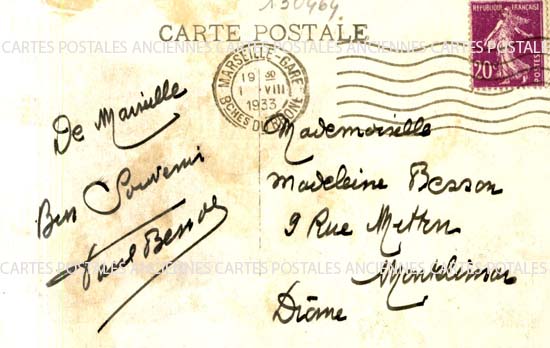 130464
CARTE POSTALE
RÉPUBLIQUE FRANÇAISE
20c
POSTES
MARSEILLE-GARE
19 30
1 -VIII
1933
BCHES DU RHONE
CARTES POSTALES ANCIENNES CARTES POSTALES ANCIENNES CARTES POSTALES
De Marseille
Bon Souvenir
Paul Besson
Mademoiselle
Madeleine Besson
9 Rue
Montélimar
Drôme
ANCIENNES CARTES POSTALES ANCIENNES CARTES POSTALES